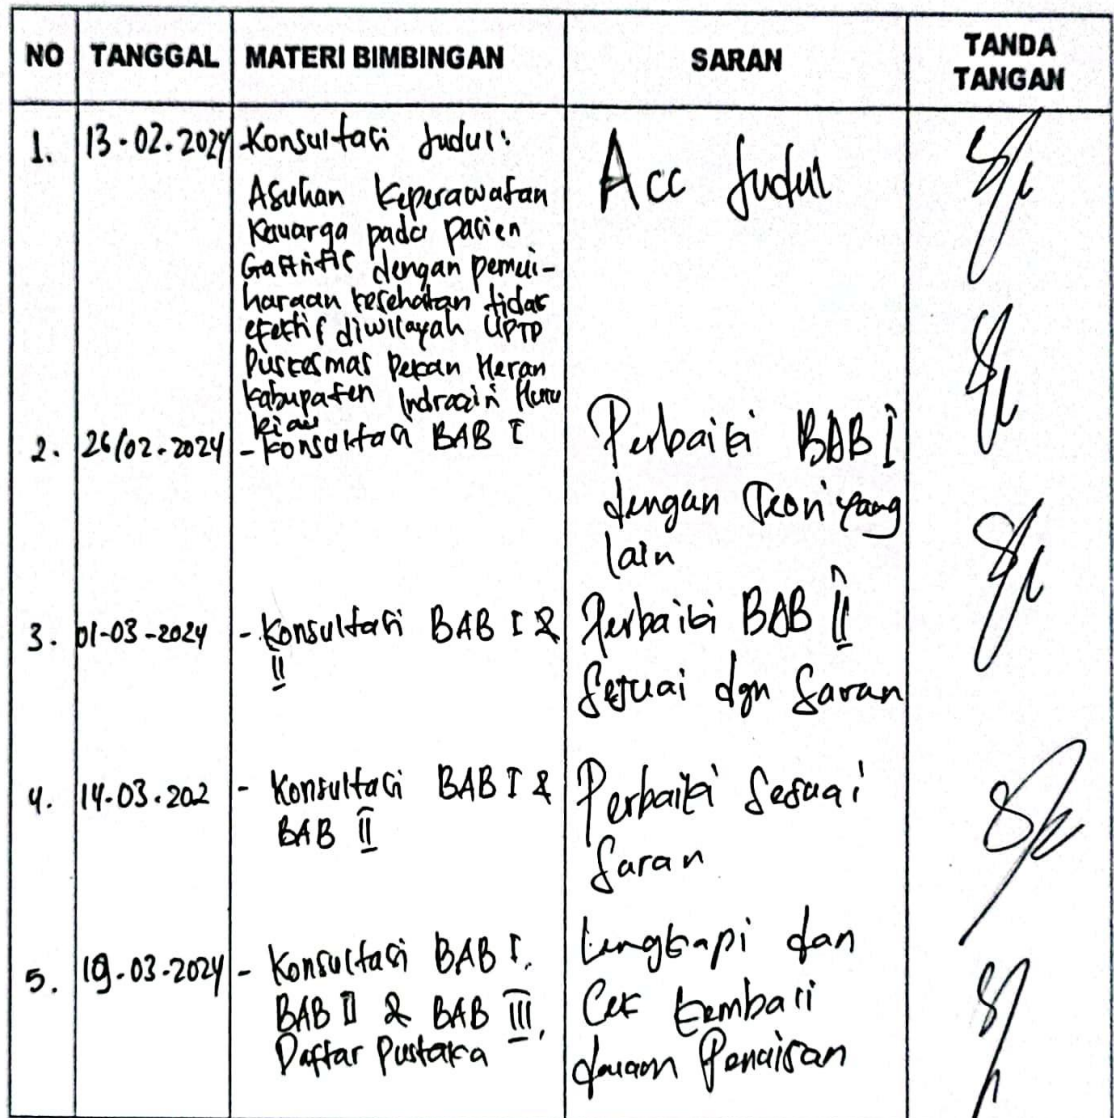 NO TANGGAL MATERI BIMBINGAN SARAN TANDA TANGAN
1. 13-02-2024 Konsultasi Judul: Acc Judul
Asuhan Keperawatan
Keluarga pada pasien
Gastritis dengan pemeli-
haraan kesehatan tidak
efektif diwilayah UPTD
Puskesmas Pekan Heran
Kabupaten Indragiri Hulu
Riau
2. 26/02-2024 - Konsultasi BAB I Perbaiki BAB I
dengan Teori yang
lain
3. 01-03-2024 - Konsultasi BAB I & Perbaiki BAB II
II Sesuai dgn Saran
4. 14-03-202 - Konsultasi BAB I & Perbaiki Sesuai
BAB II Saran
5. 19-03-2024 - Konsultasi BAB I, Lengkapi dan
BAB II & BAB III, Cek kembali
Daftar Pustaka dalam Penulisan